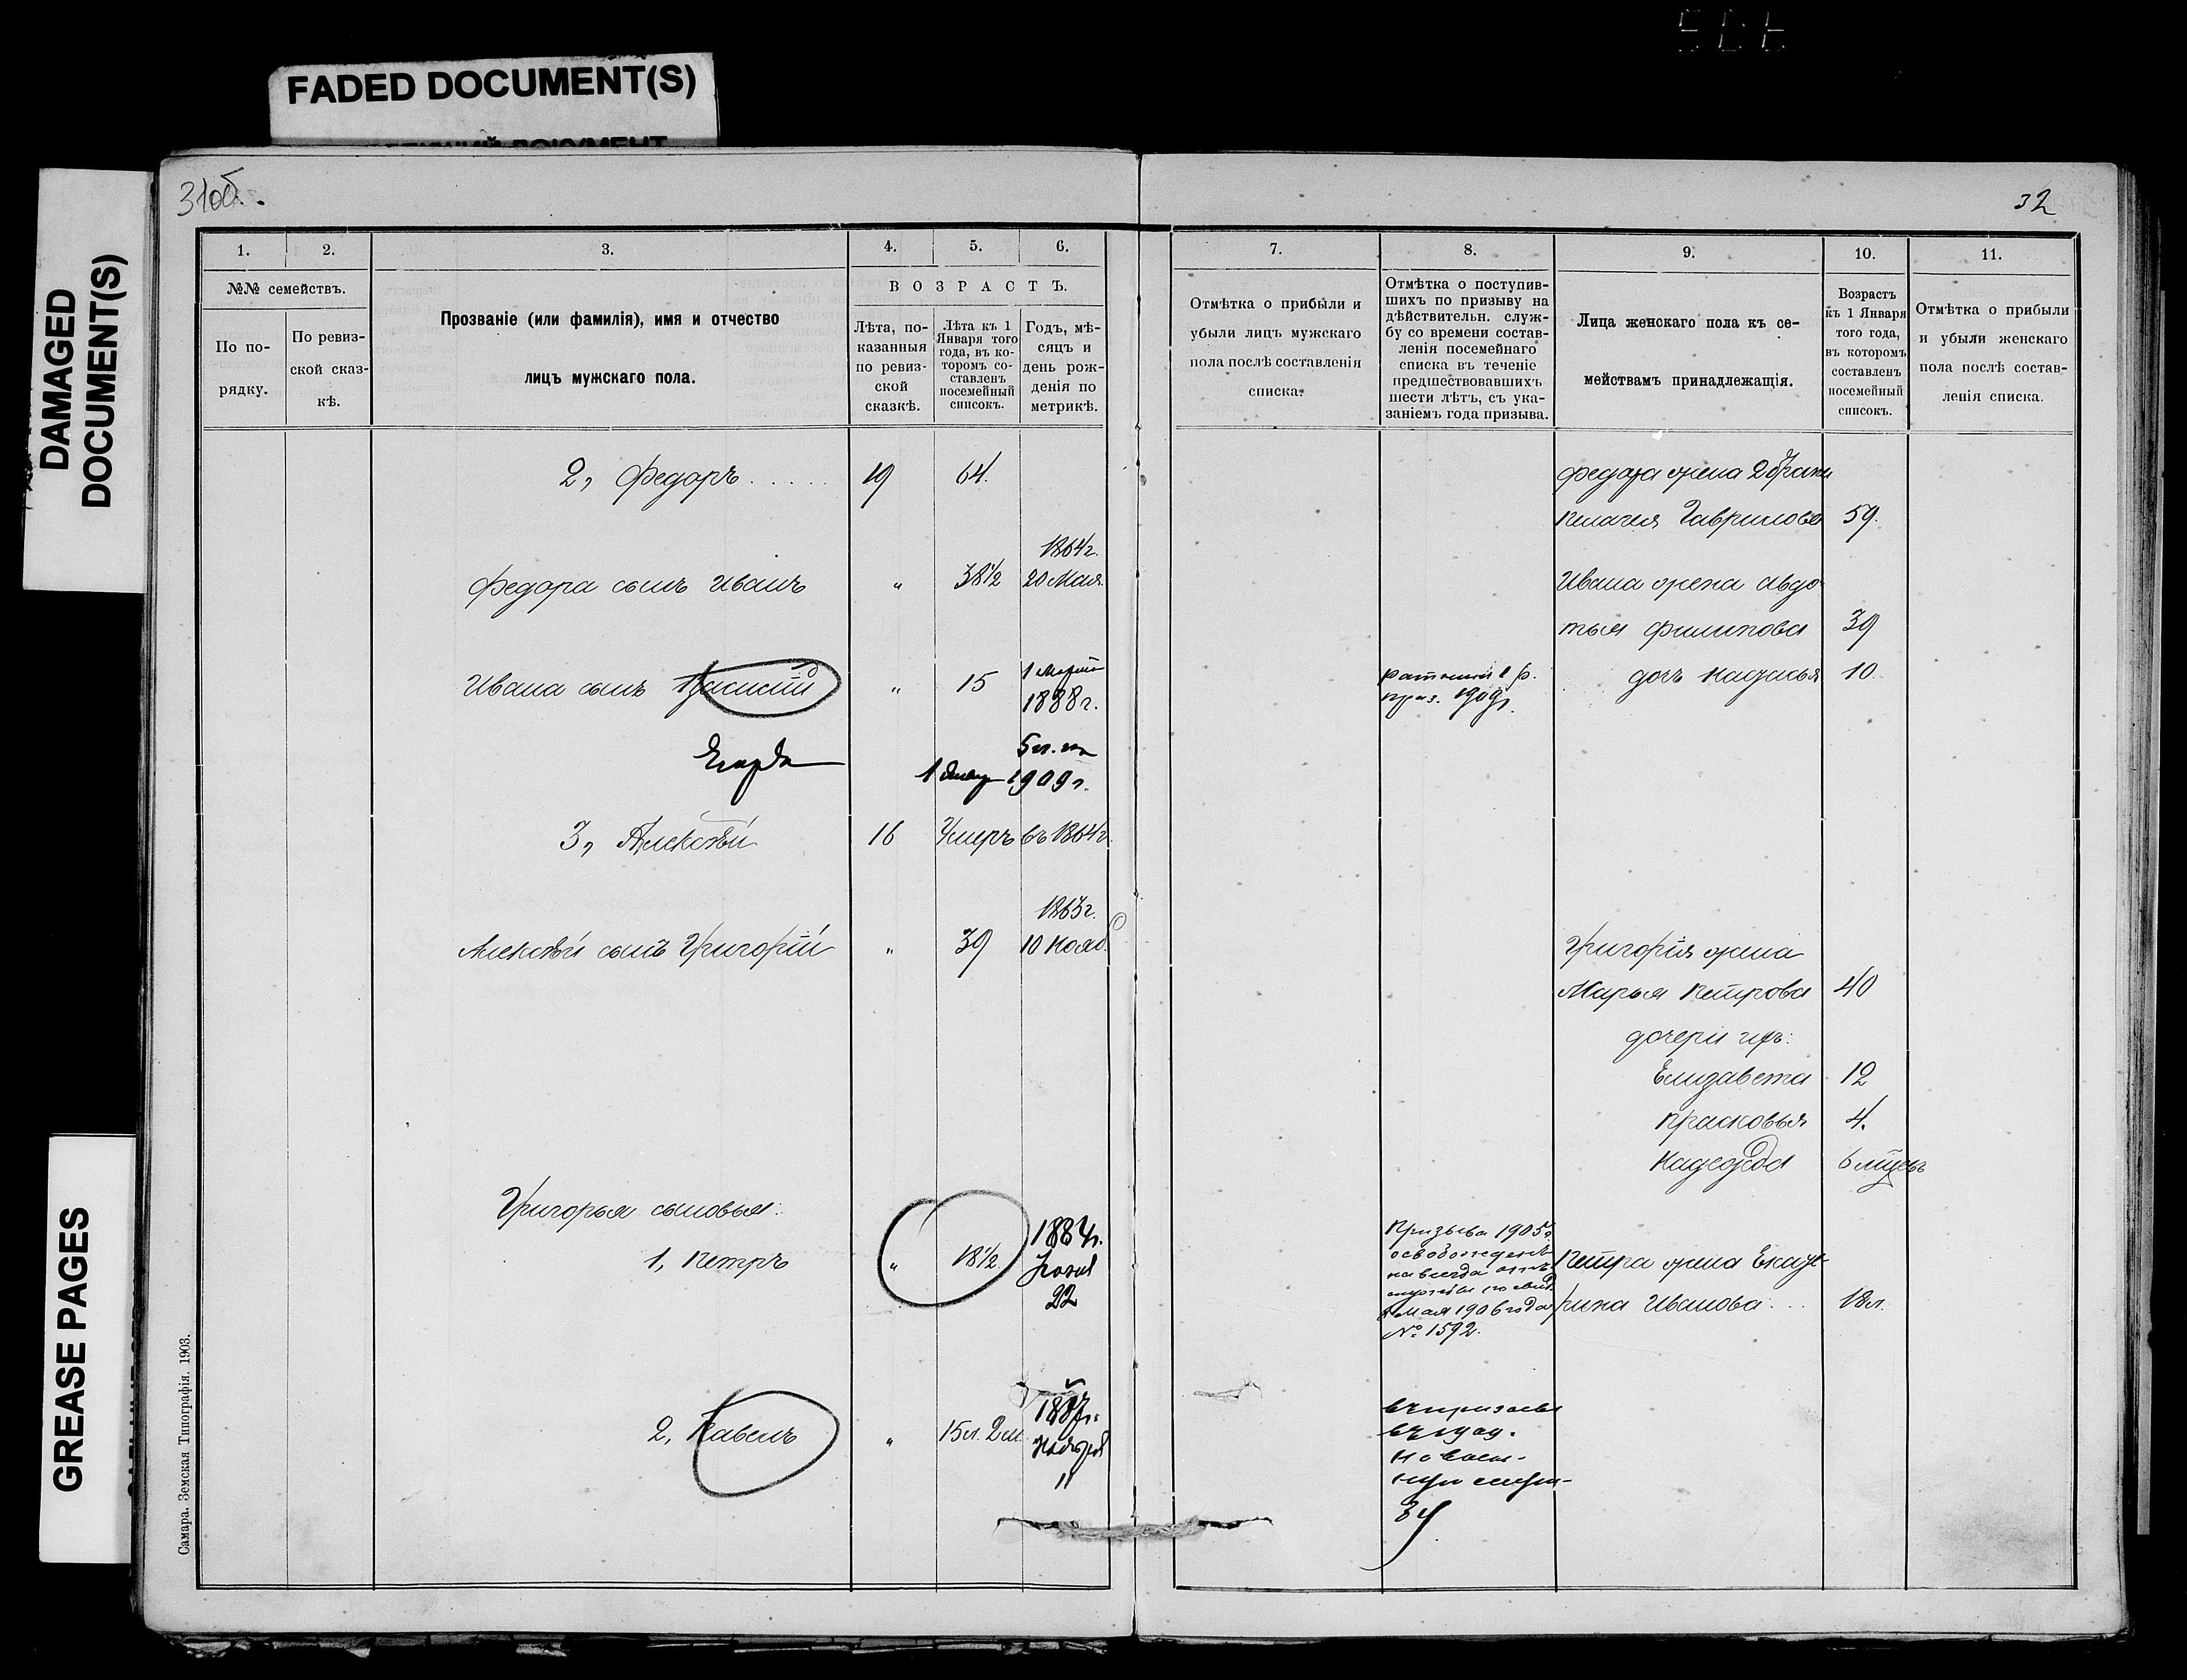 FADED DOCUMENT(S)
DAMAGED
DOCUMENT(S)
GREASE PAGES
31об.
32
1.
2.
3.
4.
5.
6.
7.
8.
9.
10.
11.
№№ семействъ.
По по-
рядку.
По ревиз-
ской сказ-
кѣ.
Прозваніе (или фамилія), имя и отчество
лицъ мужскаго пола.
ВОЗРАСТЪ.
Лѣта, по-
казанныя
по ревиз-
ской
сказкѣ.
Лѣта къ 1
Января того
года, въ ко-
торомъ со-
ставленъ
посемейный
списокъ.
Годъ, мѣ-
сяцъ и
день рож-
денія по
метрикѣ.
Отмѣтка о прибыли и
убыли лицъ мужскаго
пола послѣ составленія
списка.
Отмѣтка о поступив-
шихъ по призыву на
дѣйствительн. служ-
бу со времени состав-
ленія посемейнаго
списка въ теченіе
предшествовавшихъ
шести лѣтъ, съ ука-
заніемъ года призыва.
Лица женскаго пола къ се-
мействамъ принадлежащія.
Возрастъ
къ 1 Января
того года,
въ которомъ
составленъ
посемейный
списокъ.
Отмѣтка о прибыли
и убыли женскаго
пола послѣ состав-
ленія списка.
2, Федоръ ..... 19 64.
Федора жена 2 брака
Пелагея Гаврилова 59.
1864г.
Федора сынъ Иванъ " 38½ 20 Мая.
Ивана жена Авдо
тья Филипова 39
Ивана сынъ Василій " 15 1 Марта
1888г.
ратникъ 1 р.
приз. 1909г.
дочь Наталья 10.
5 л. на
1 Январ 1909г.
3, Алексѣй 16 Умеръ въ 1864г.
1863г.
Алексѣй сынъ Григорій " 39 10 Нояб.
Григорія жена
Марья Петрова 40
дочери ихъ:
Елизавета 12
Прасковья 4.
Надежда 6 мѣцевъ
Григорья сыновья:
1, Петръ " 18½
1884г.
22
Призыва 1905г.
освобожденъ
навсегда отъ
службы по свид.
Мая 1906 года
№ 1592.
Петра жена Екате-
рина Иванова... 18л.
2, Павелъ " 15л. 2м.
1887г.
Ноября
11
Самара. Земская Типографія. 1903.